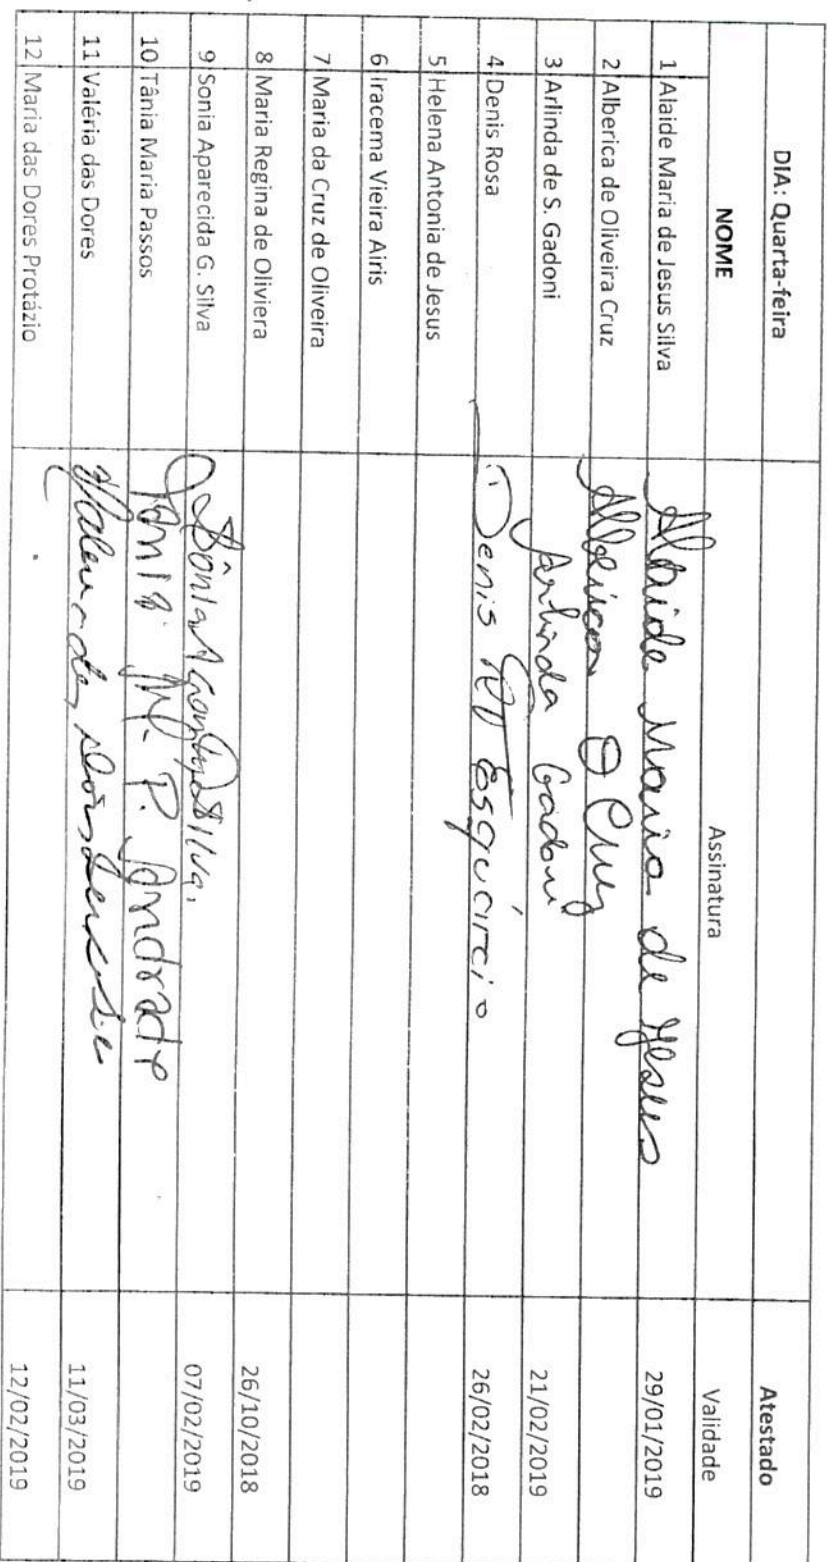 DIA: Quarta-feira Atestado
NOME Assinatura Validade
1 Alaide Maria de Jesus Silva Alaide Maria de Jesus 29/01/2019
2 Alberica de Oliveira Cruz Alberica O Cruz
3 Arlinda de S. Gadoni Arlinda Gadoni 21/02/2019
4 Denis Rosa Denis 26/02/2018
5 Helena Antonia de Jesus
6 Iracema Vieira Airis
7 Maria da Cruz de Oliveira
8 Maria Regina de Oliviera 26/10/2018
9 Sonia Aparecida G. Silva Sônia Silva 07/02/2019
10 Tânia Maria Passos Tânia M. P. Andrade
11 Valéria das Dores 11/03/2019
12 Maria das Dores Protázio 12/02/2019